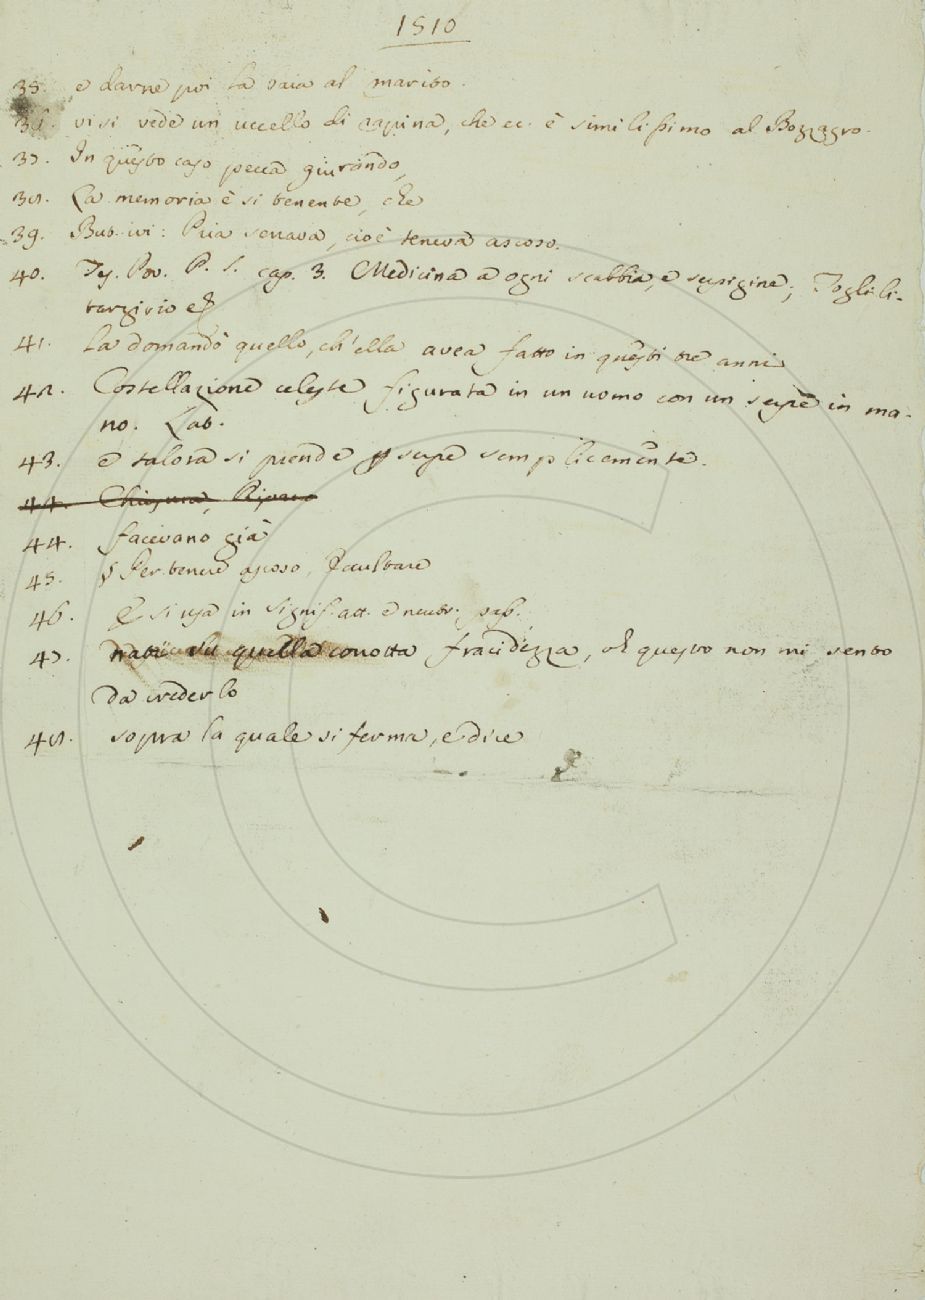 1510
35. e darne poi la baia al marito.
36. visi vede un uccello di rapina, che ec. è similissimo al Bozzagro.
37. In questo caso pecca giurando,
38. La memoria è si tenente, che
39. But. ivi: Pria serrava, cioè teneva ascoso.
40. Tes. Pov. P. S. cap. 3. Medicina a ogni scabbia, e serpigine; Togli li-
targirio e
41. La domandò quello, ch'ella avea fatto in questi tre anni
42. Costellazione celeste figurata in un uomo con un serpe in ma-
no. Lab.
43. e talora si prende p serpe semplicemente.
44. Chiusura, Riparo
44. facevano già
45. § Per tenere ascoso, Occultare
46. E si usa in signif. att. e neutr. pass.
47. nati su quella corrotta fracidezza, oh questo non mi sento
da crederlo
48. sopra la quale si ferma, e dice